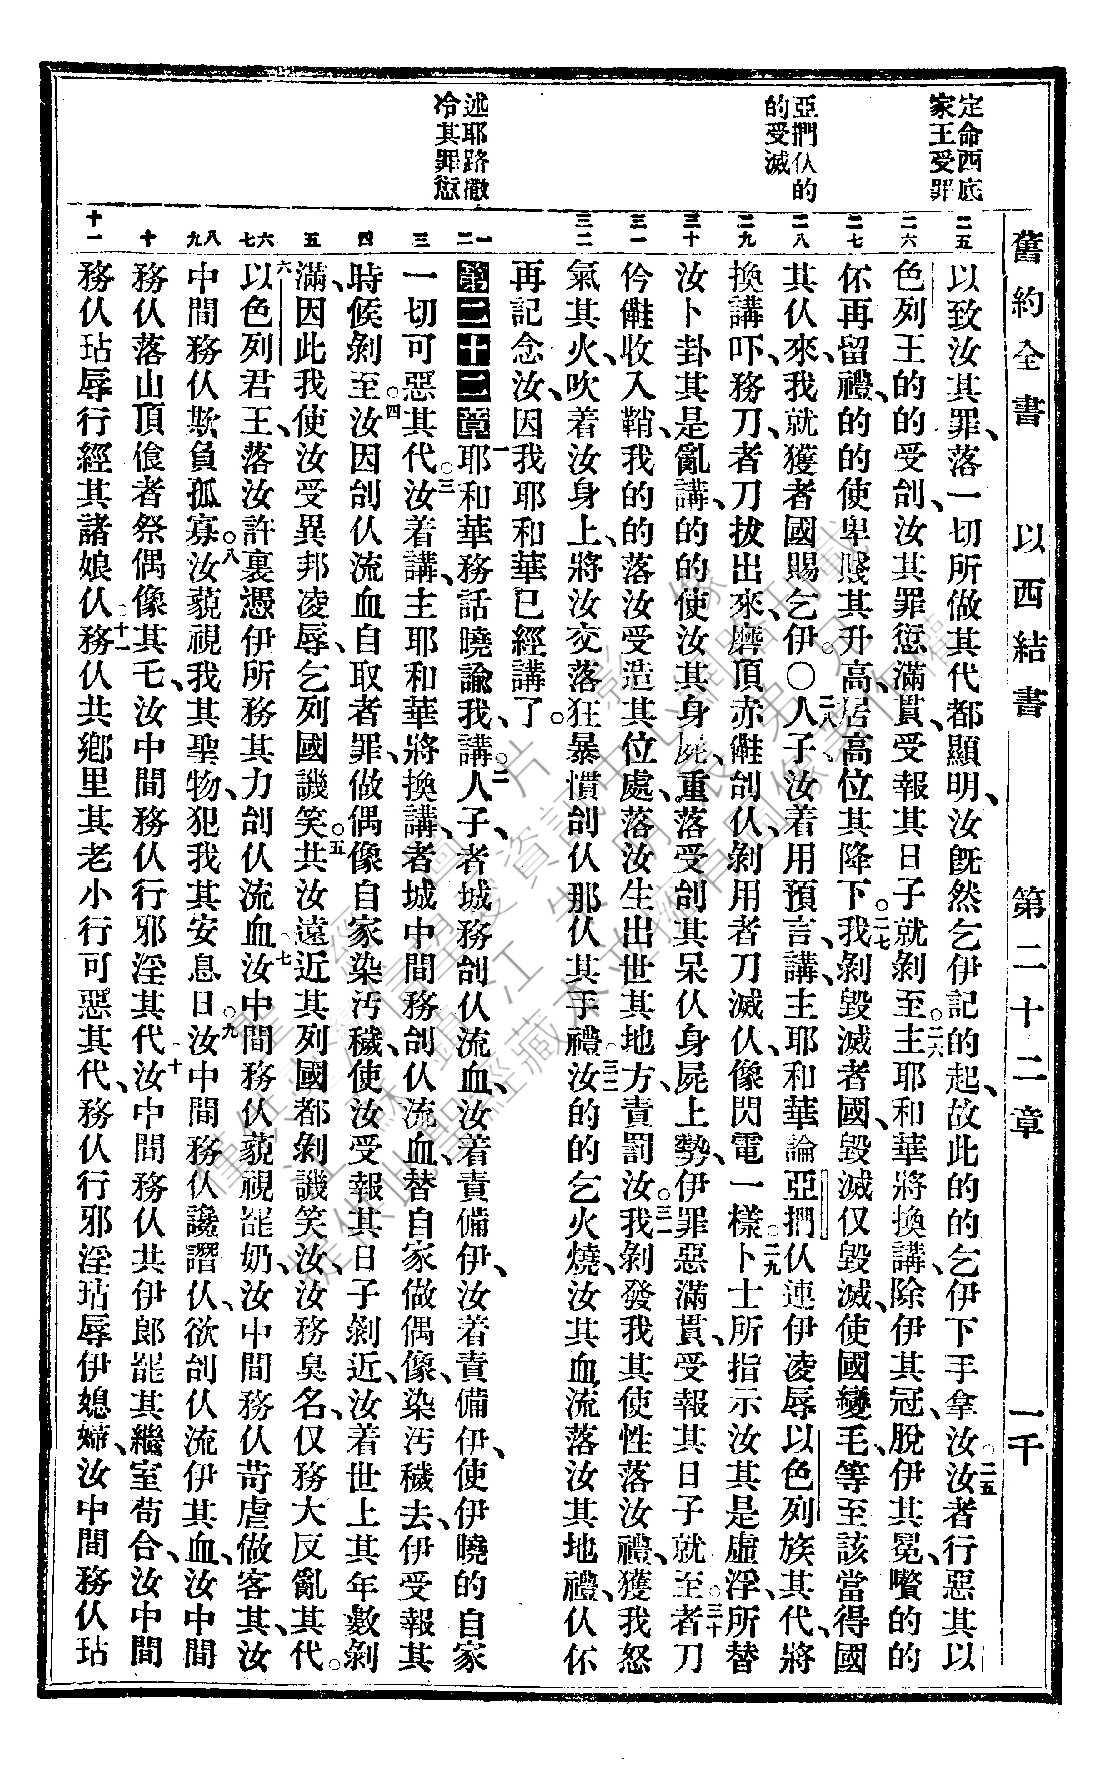 舊約全書 以西結書 第二十二章 一千
定命西底
家王受罪
亞捫仈的
的受滅
述耶路撒
冷其罪愆
二五
二六
二七
二八
二九
三十
三一
三二
一
二
三
四
五
六
七
八
九
十
十一
以致汝其罪、落一切所做其代都顯明、汝既然乞伊記的起、故此的的乞伊下手拿汝、○二五汝者行惡其以
色列王的的受刣、汝其罪愆滿貫、受報其日子就剝至、○二六主耶和華將換講、除伊其冠、脫伊其冕、嚽的的
伓再留禮、的的使卑賤其升高、居高位其降下。○二七我剝毀滅者國、毀滅仅毀滅、使國變乇、等至該當得國
其仈來、我就獲者國賜乞伊。〇○二八人子汝着用預言、講、主耶和華論亞捫仈連伊凌辱以色列族其代、將
換講吓、務刀、者刀拔出來、磨頂赤𣍐刣仈、剝用者刀滅仈、像閃電一樣、○二九卜士所指示汝其是虛浮、所替
汝卜卦其是亂講、的的使汝其身屍、重落受刣其呆仈身屍上勢、伊罪惡滿貫、受報其日子就至、○三十者刀
仱𣍐收入鞘、我的的落汝受造其位處、落汝生出世其地方、責罰汝。○三一我剝發我其使性落汝禮、獲我怒
氣其火、吹着汝身上、將汝交落狂暴慣刣仈那仈其手禮、○三二汝的的乞火燒、汝其血流落汝其地禮、仈伓
再記念汝、因我耶和華已經講了。
第二十二章一耶和華務話曉諭我、講、○二人子、者城務刣仈流血、汝着責備伊、汝着責備伊、使伊曉的自家
一切可惡其代、○三汝着講、主耶和華將換講、者城中間務刣仈流血、替自家做偶像、染汚穢去、伊受報其
時候剝至、○四汝因刣仈流血自取者罪、做偶像自家染汚穢、使汝受報其日子剝近、汝着世上其年數剝
滿、因此我使汝受異邦凌辱、乞列國譏笑。○五共汝遠近其列國都剝譏笑汝、汝務臭名、仅務大反亂其代。
○六以色列君王、落汝許裏憑伊所務其力刣仈流血、○七汝中間務仈藐視罷奶、汝中間務仈苛虐做客其、汝
中間務仈欺負孤寡、○八汝藐視我其聖物、犯我其安息日、○九汝中間務仈讒譖仈、欲刣仈流伊其血、汝中間
務仈落山頂飡者祭偶像其乇、汝中間務仈行邪淫其代、○十汝中間務仈共伊郎罷其繼室苟合、汝中間
務仈玷辱行經其諸娘仈、○十一務仈共鄉里其老小行可惡其代、務仈行邪淫玷辱伊媳婦、汝中間務仈玷